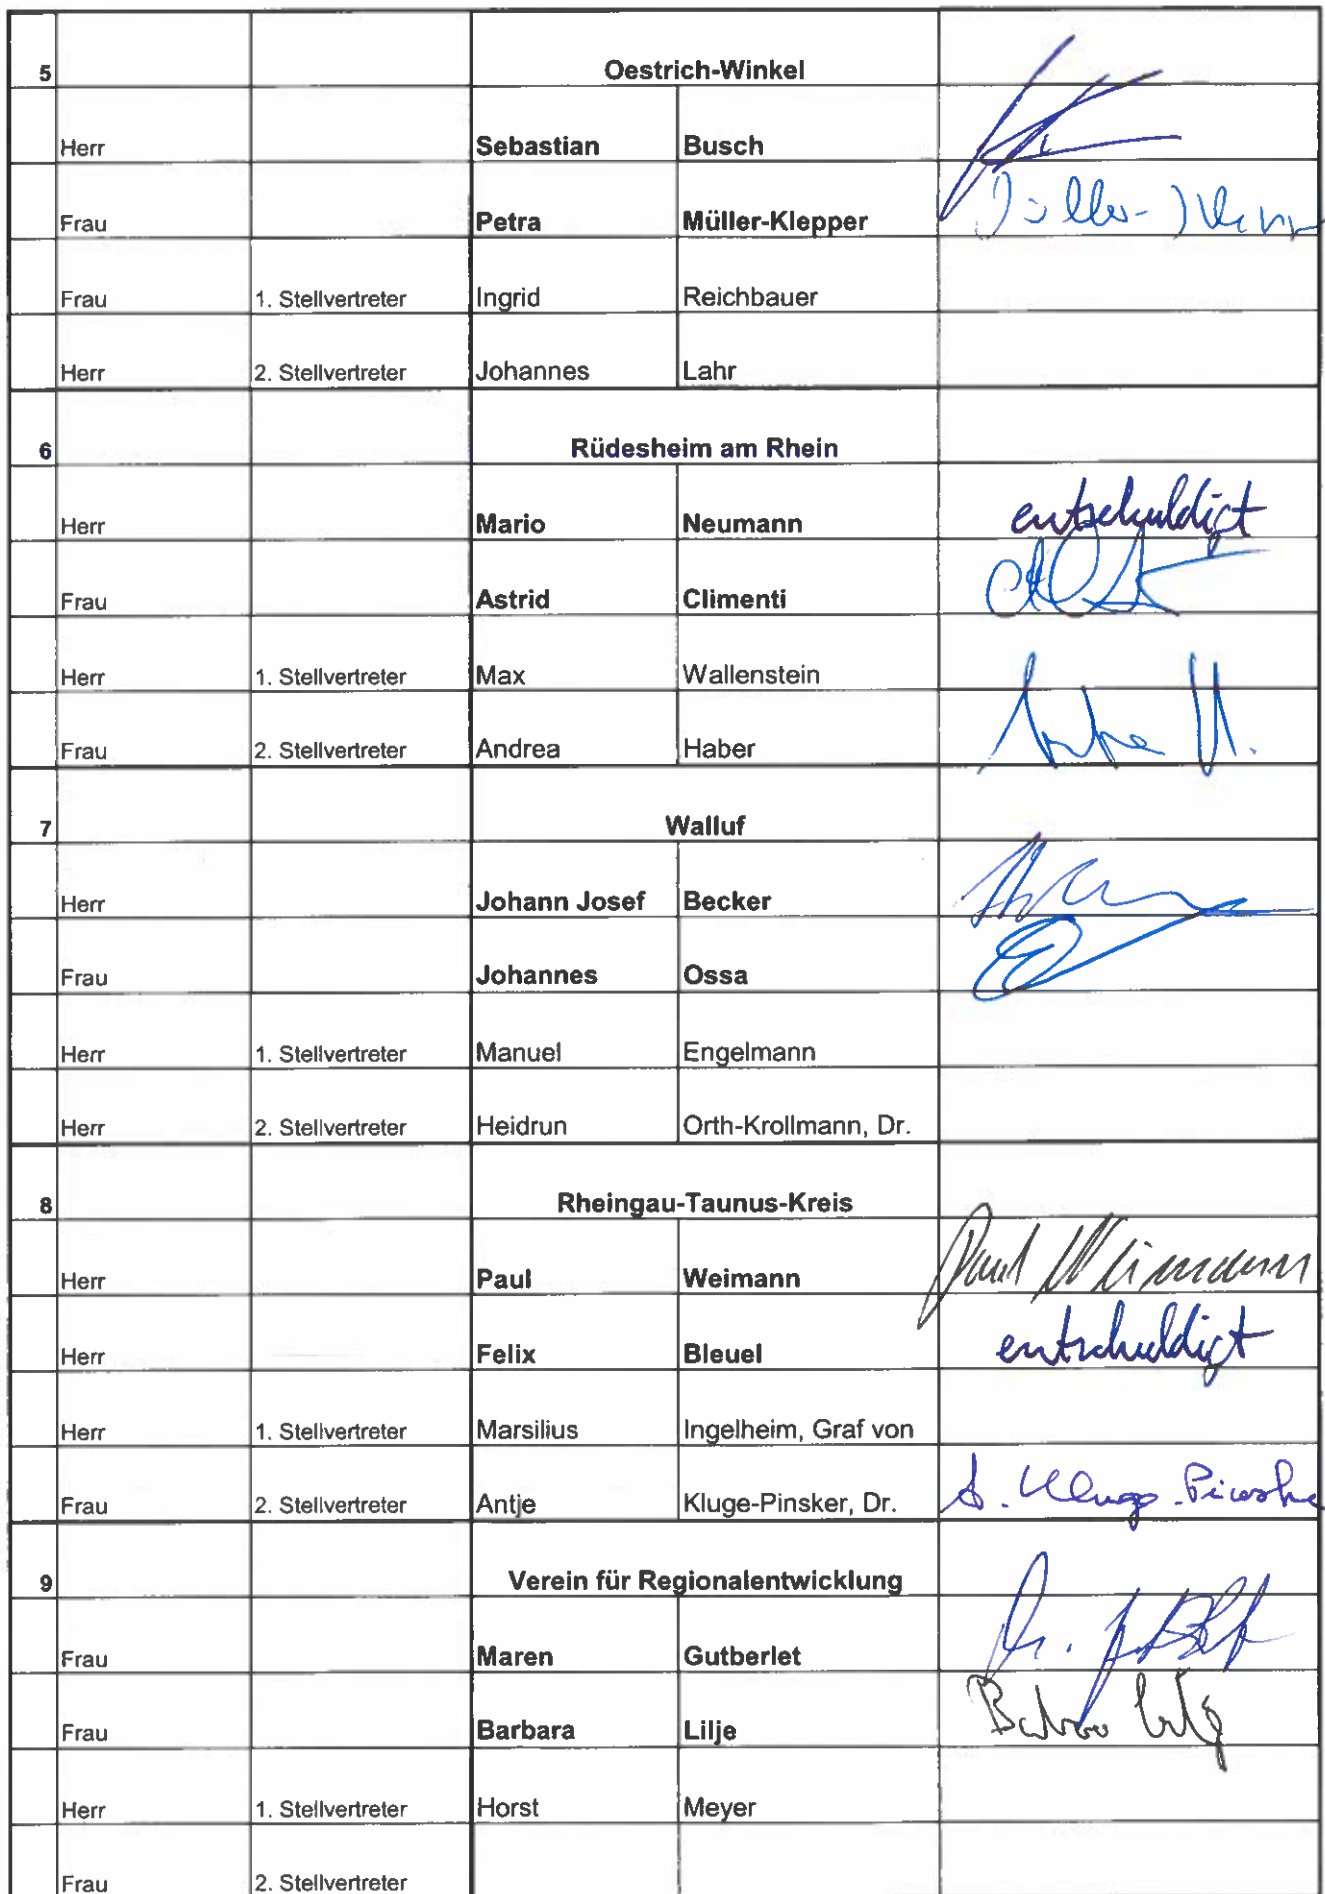 5 Oestrich-Winkel
Herr Sebastian Busch
Frau Petra Müller-Klepper Müller-Klepp
Frau 1. Stellvertreter Ingrid Reichbauer
Herr 2. Stellvertreter Johannes Lahr
6 Rüdesheim am Rhein
Herr Mario Neumann entschuldigt
Frau Astrid Climenti
Herr 1. Stellvertreter Max Wallenstein
Frau 2. Stellvertreter Andrea Haber Andrea H.
7 Walluf
Herr Johann Josef Becker
Frau Johannes Ossa
Herr 1. Stellvertreter Manuel Engelmann
Herr 2. Stellvertreter Heidrun Orth-Krollmann, Dr.
8 Rheingau-Taunus-Kreis
Herr Paul Weimann Paul Weimann
Herr Felix Bleuel entschuldigt
Herr 1. Stellvertreter Marsilius Ingelheim, Graf von
Frau 2. Stellvertreter Antje Kluge-Pinsker, Dr. A. Kluge-Pinsker
9 Verein für Regionalentwicklung
Frau Maren Gutberlet
Frau Barbara Lilje Barbara Lilje
Herr 1. Stellvertreter Horst Meyer
Frau 2. Stellvertreter